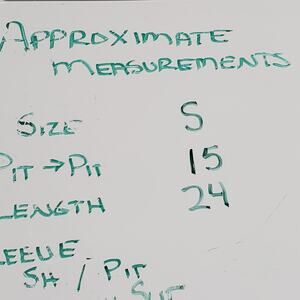 APPROXIMATE
MEASUREMENTS
SIZE S
PIT → PIT 15
LENGTH 24
LEEVE
SH / PIT